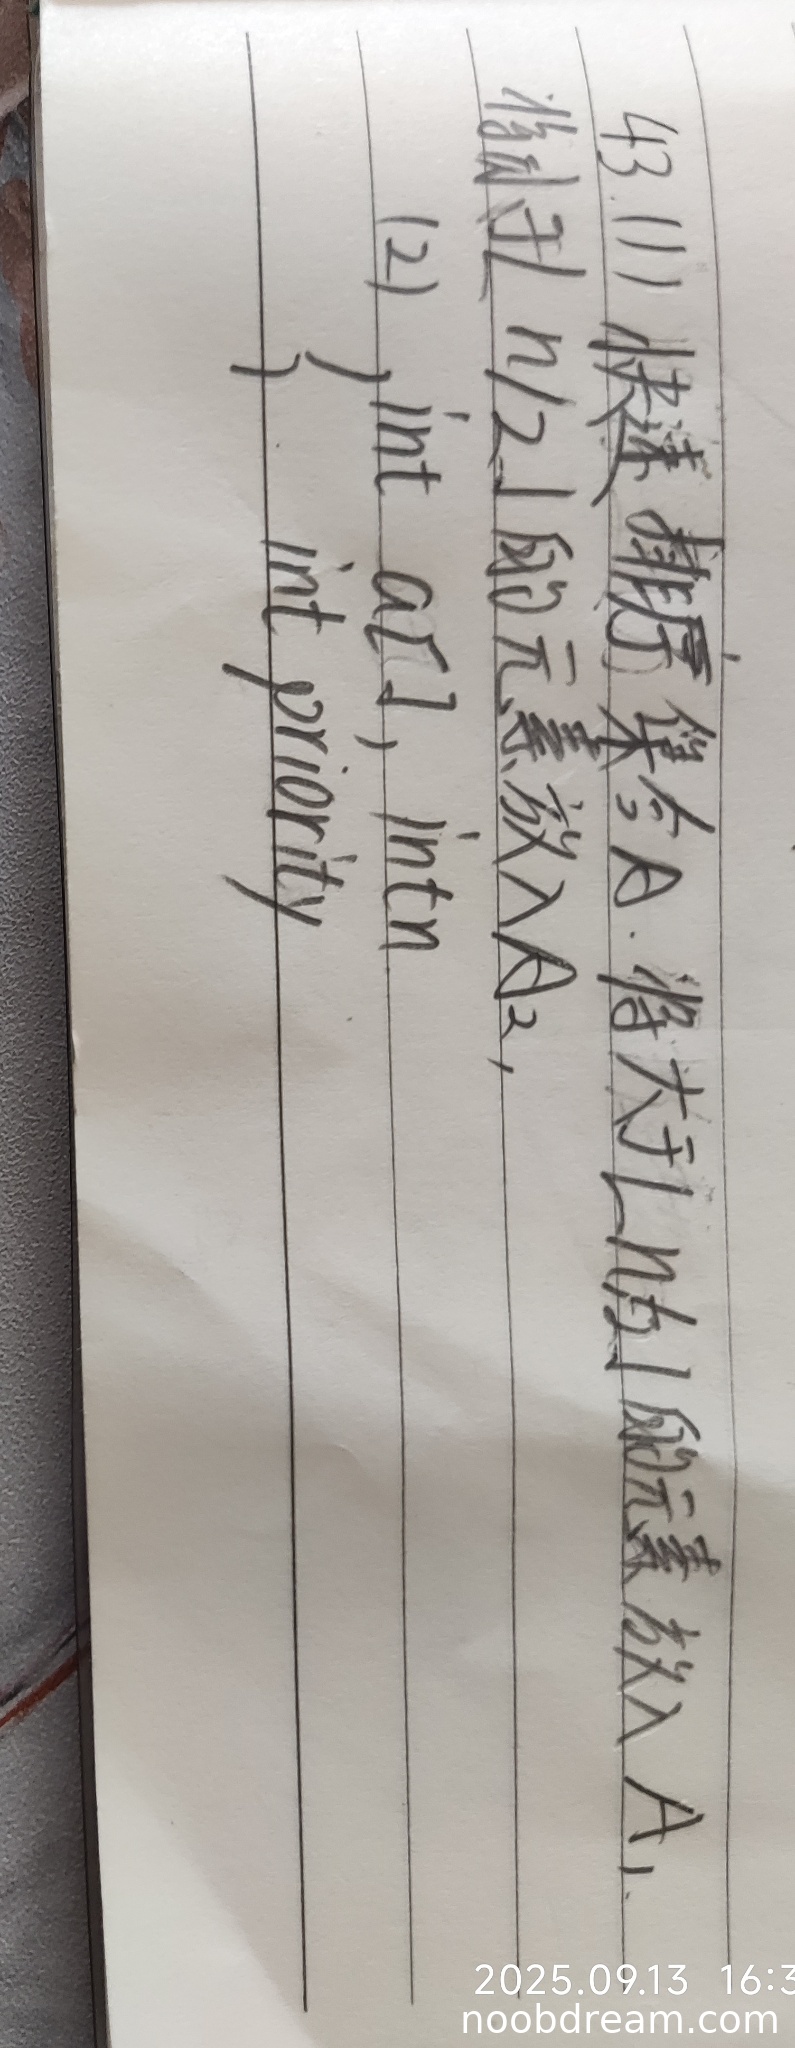 43.(1) 快速排序集合A.将大于⌊n/2⌋的元素放入A1.
将小于⌊n/2⌋的元素放入A2,
(2) , int a[], int n
) int priority
)
2025.09.13 16:3
noobdream.com